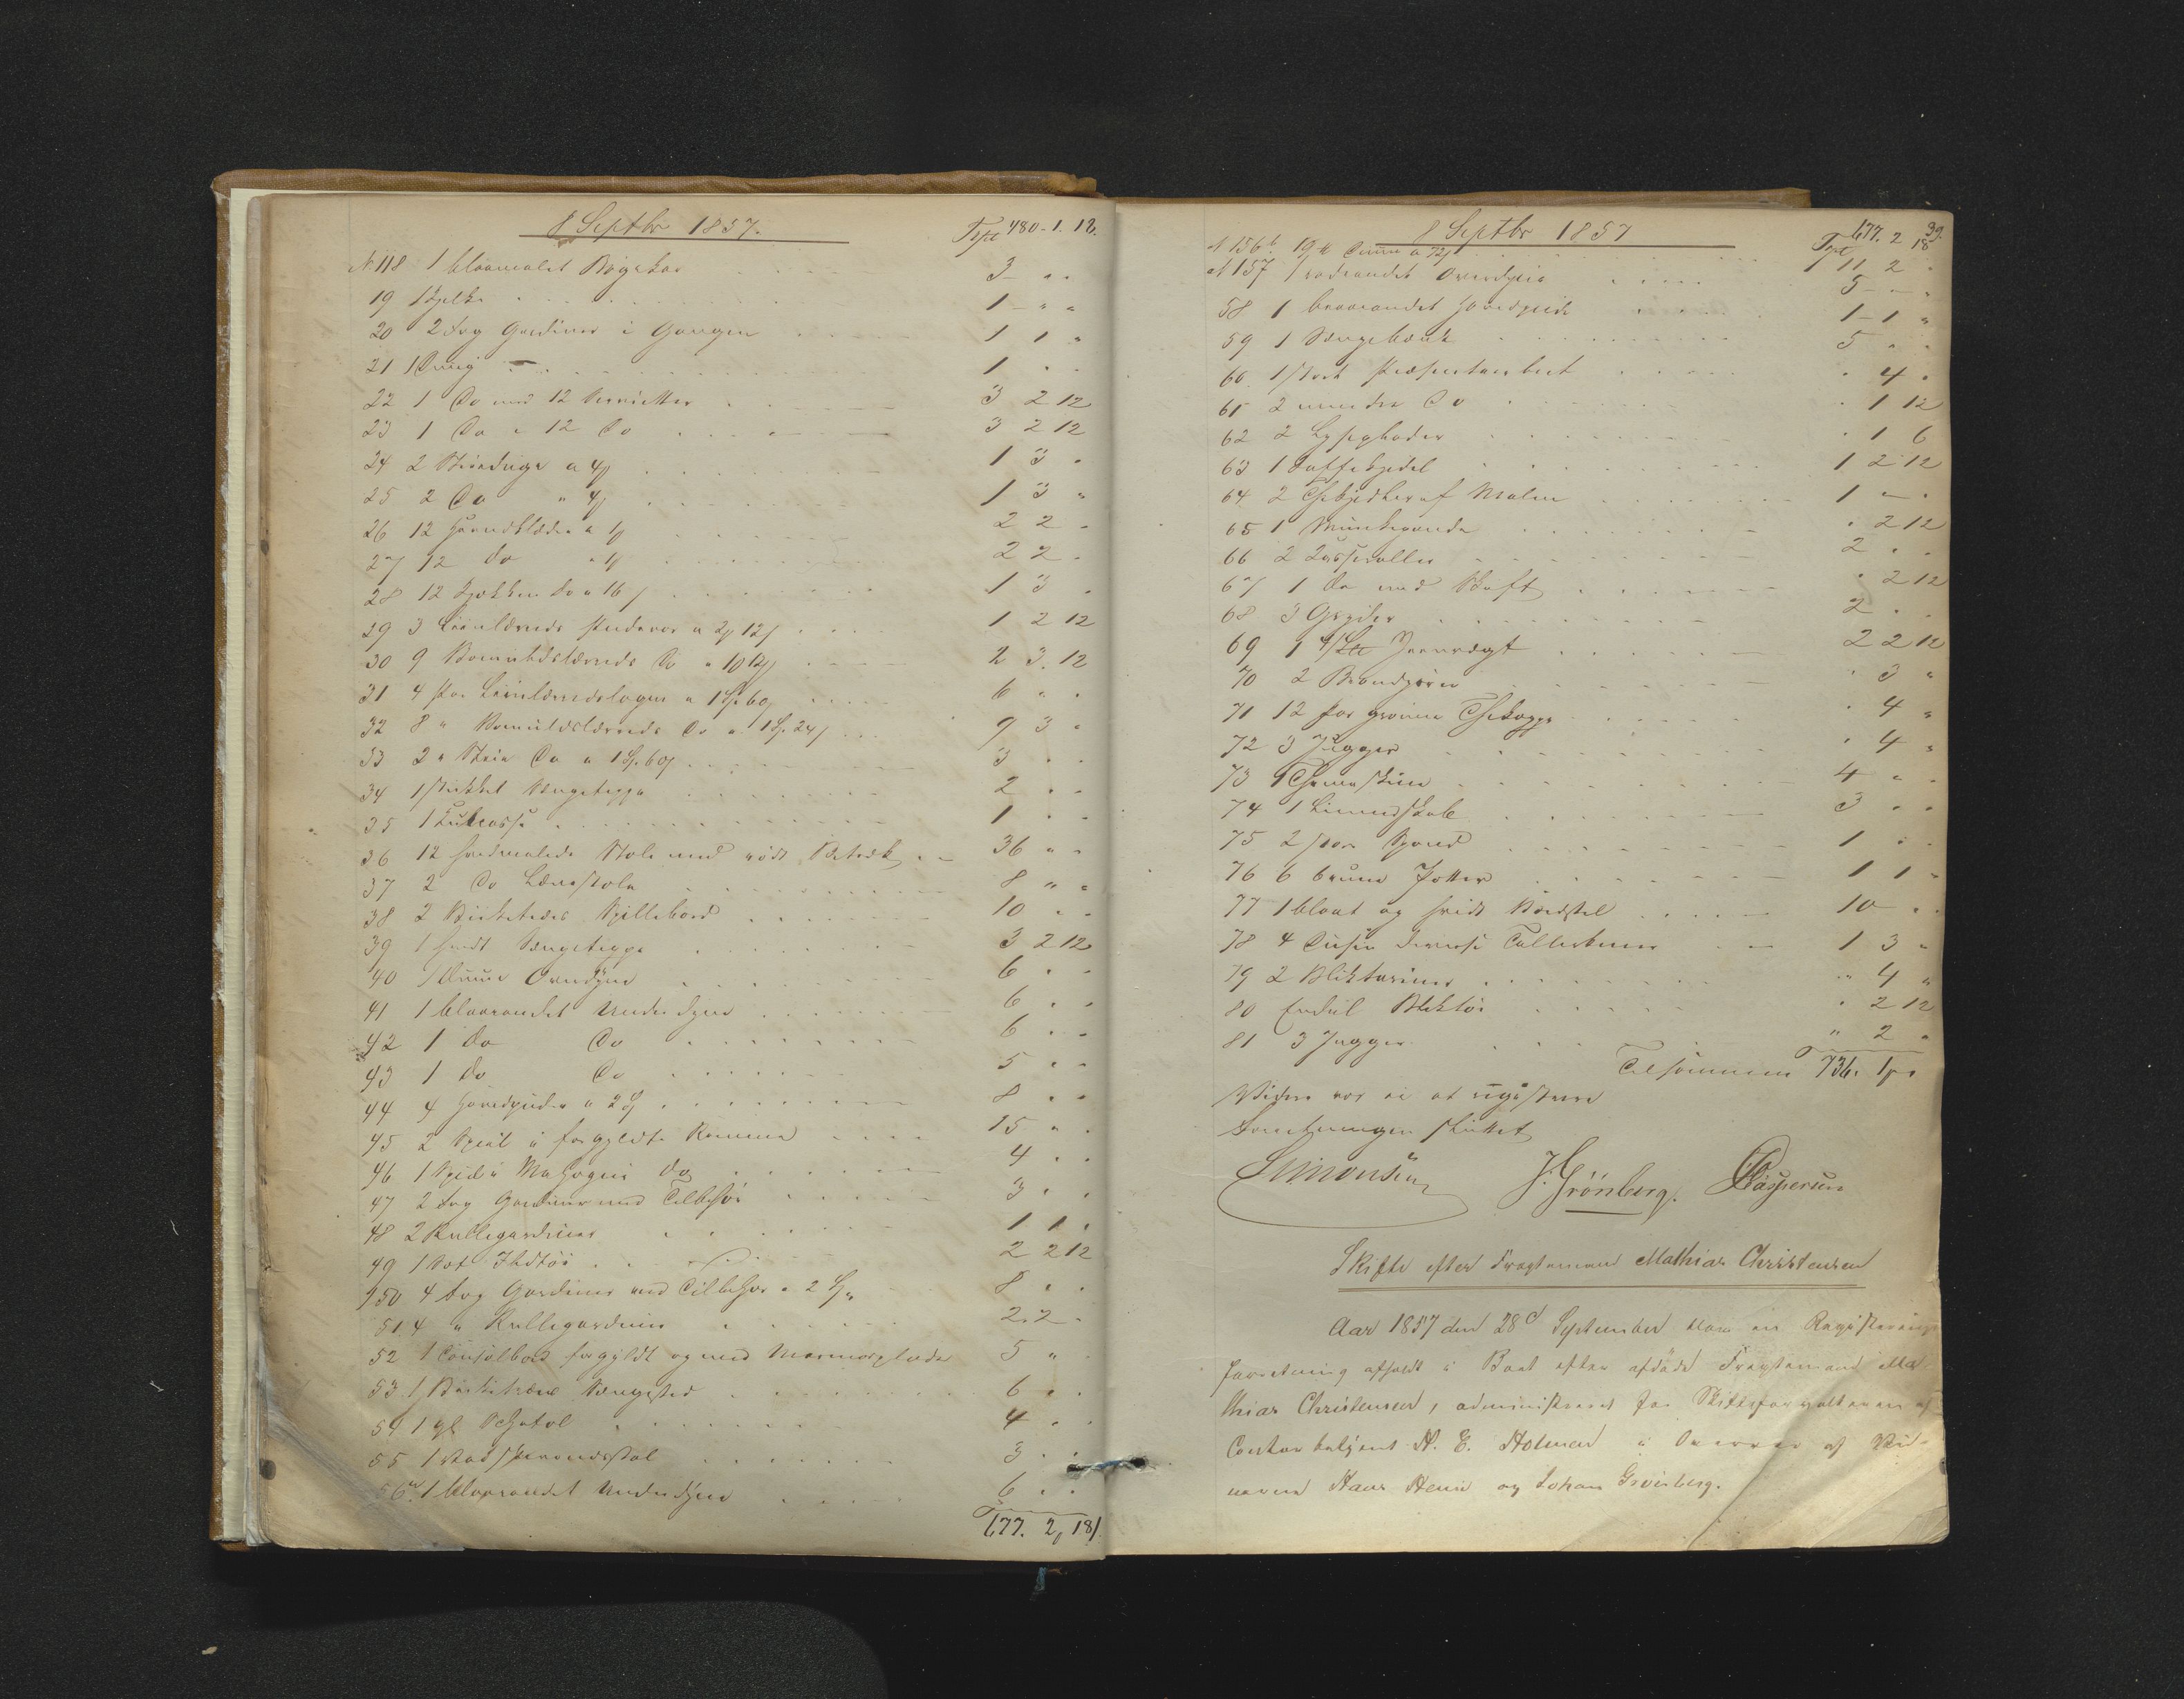 8 Septbr 1857.
Trspt 480-1.18.
N 118 1 blaamalet Bogskab 3 " "
19 1 1 - " "
20 2 Fag Gardiner i Gangen 1 1 "
21 1 Dug 1 " "
22 1 Do med 12 Servietter 3 2 12
23 1 Do " 12 Do 3 2 12
24 2 a 4 1 3 "
25 2 Do " 4 1 3 "
26 12 Haandklæder a 1 2 2 "
27 12 do " 1 2 2 "
28 12 Kjøkken do a 16 1 3 "
29 3 Linlærreds a 2 12 1 2 12
30 9 Bomuldslærreds Do 2 3. 12
31 4 Par Linlærredslagen a 1 Sp. 60 6 " "
32 8 " Bomuldslærreds Do a 1 Sp. 24 9 3 "
33 2 " Do a 1 Sp. 60 3 " "
34 1 Sengeteppe 2 " "
35 1 1 " "
36 12 Stole med rødt Betræk 36 " "
37 2 Do Lænestole 8 " "
38 2 Birketræes Spillebord 10 " "
39 1 hvidt Sengeteppe 3 2 12
40 1 Overdyne 6 " "
41 1 blaarandet Underdyne 6 " "
42 1 do Do 6 " "
43 1 do Do 5 " "
44 4 Hovedpuder a 2 8 " "
45 2 Speil i forgyldte Rammer 15 " "
46 1 Speil i Mahogni do 4 " "
47 2 Fag Gardiner med Tilbehør 3 " "
48 2 Rullegardiner 1 1 "
49 1 Sæt Ildtøi 2 2 12
150 4 Fag Gardiner med Tilbehør a 2 8 " "
51 4 " Rullegardiner 2 2 "
52 1 Consolbord forgyldt og med Marmorplade 5 " "
53 1 Birketræes Sengested 6 " "
54 1 gl Schatol 4 " "
55 1 3 " "
56a 1 blaarandet Underdyne 6 " "
677. 2 18
39.
8 Septbr 1857
Trspt 677. 2 18
N 156b 19 11 2 "
N 157 1 rødrandet Overdyne 5 - "
58 1 Hovedpude 1 - 1 "
59 1 Sengebænk 5 " "
60 1 stort Præsenteerbret " 4 "
61 2 mindre Do " 1 12
62 2 " 1 6
63 1 Kaffekjedel 1 2 12
64 2 af Malm 1 - "
65 1 Munkepande " 2 12
66 2 Casseroller 2 " "
67 1 do med Skaft " 2 12
68 3 Gryder 2 " "
69 1 Jernvægt 2 2 12
70 2 " 3 "
71 12 Par grønne Thekopper " 4 "
72 3 Jugger " 4 "
73 1 Themaskine 4 " "
74 1 Linnedskab 3 " "
75 2 store Spand 1 " "
76 6 brune Potter 1 1 "
77 1 blaat og hvidt Bordstel 10 " "
78 4 Dusin diverse Tallerkener 1 3 "
79 2 Blikterriner " 4 "
80 Endeel Bliktøi " 2 12
81 3 Jugger " 2 "
Tilsammen 736. 1
Videre var ei at registrere
Forretningen sluttet
Simonsen J. Grönberg. Kaspersen
Skifte efter Fragtemand Mathias Christensen
Aar 1857 den 28d September blev en Registrerings
forretning afholdt i Boet efter afdøde Fragtemand Ma-
thias Christensen, administreret for Skifteforvalteren af
Contorbetjent H. E. Holmen i Overvær af Vid-
nerne Hans Henie og Johan Grönberg.